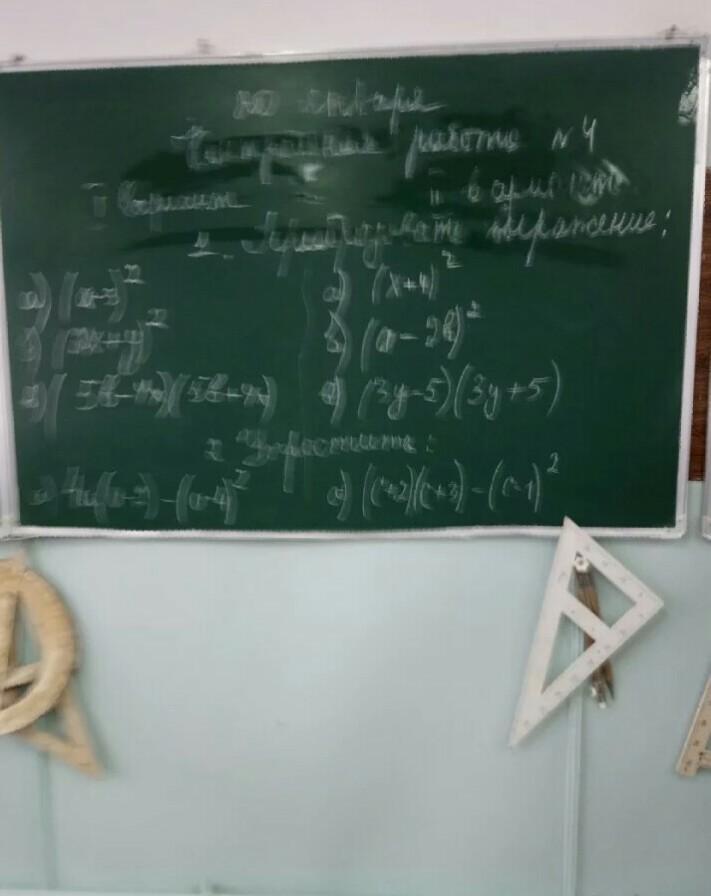 20 января
Контрольная работа №4
I вариант II вариант
1. Преобразовать выражение:
а) (а-3)² а) (х+4)²
б) (2х+y)² б) (а-2b)²
в) (5b-4х)(5b+4х) в) (3y-5)(3y+5)
2 Упростите:
а) 4а(а-2)-(а-4)² а) (с+2)(с+3)-(с-1)²